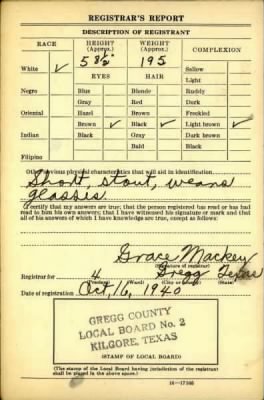 REGISTRAR'S REPORT
DESCRIPTION OF REGISTRANT
RACE HEIGHT (Approx.) WEIGHT (Approx.) COMPLEXION
White ✓ 5 8½ 195 Sallow
EYES HAIR Light
Negro Blue Blonde Ruddy
Gray Red Dark
Oriental Hazel Brown Freckled
Brown ✓ Black ✓ Light brown ✓
Indian Black Gray Dark brown
Bald Black
Filipino
Other obvious physical characteristics that will aid in identification
Short, stout, wears
glasses.
I certify that my answers are true; that the person registered has read or has had
read to him his own answers; that I have witnessed his signature or mark and that
all of his answers of which I have knowledge are true, except as follows:
Grace Mackey
(Signature of registrar)
Registrar for 4 Gregg Texas
(Precinct) (Ward) (City or county) (State)
Date of registration Oct, 16, 1940
GREGG COUNTY
LOCAL BOARD No. 2
KILGORE, TEXAS
(STAMP OF LOCAL BOARD)
(The stamp of the Local Board having jurisdiction of the registrant
shall be placed in the above space.)